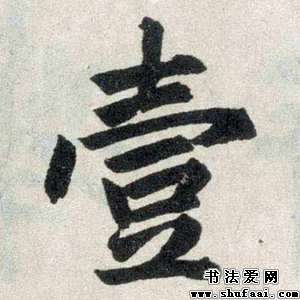 壹
书法爱网
www.shufaai.com